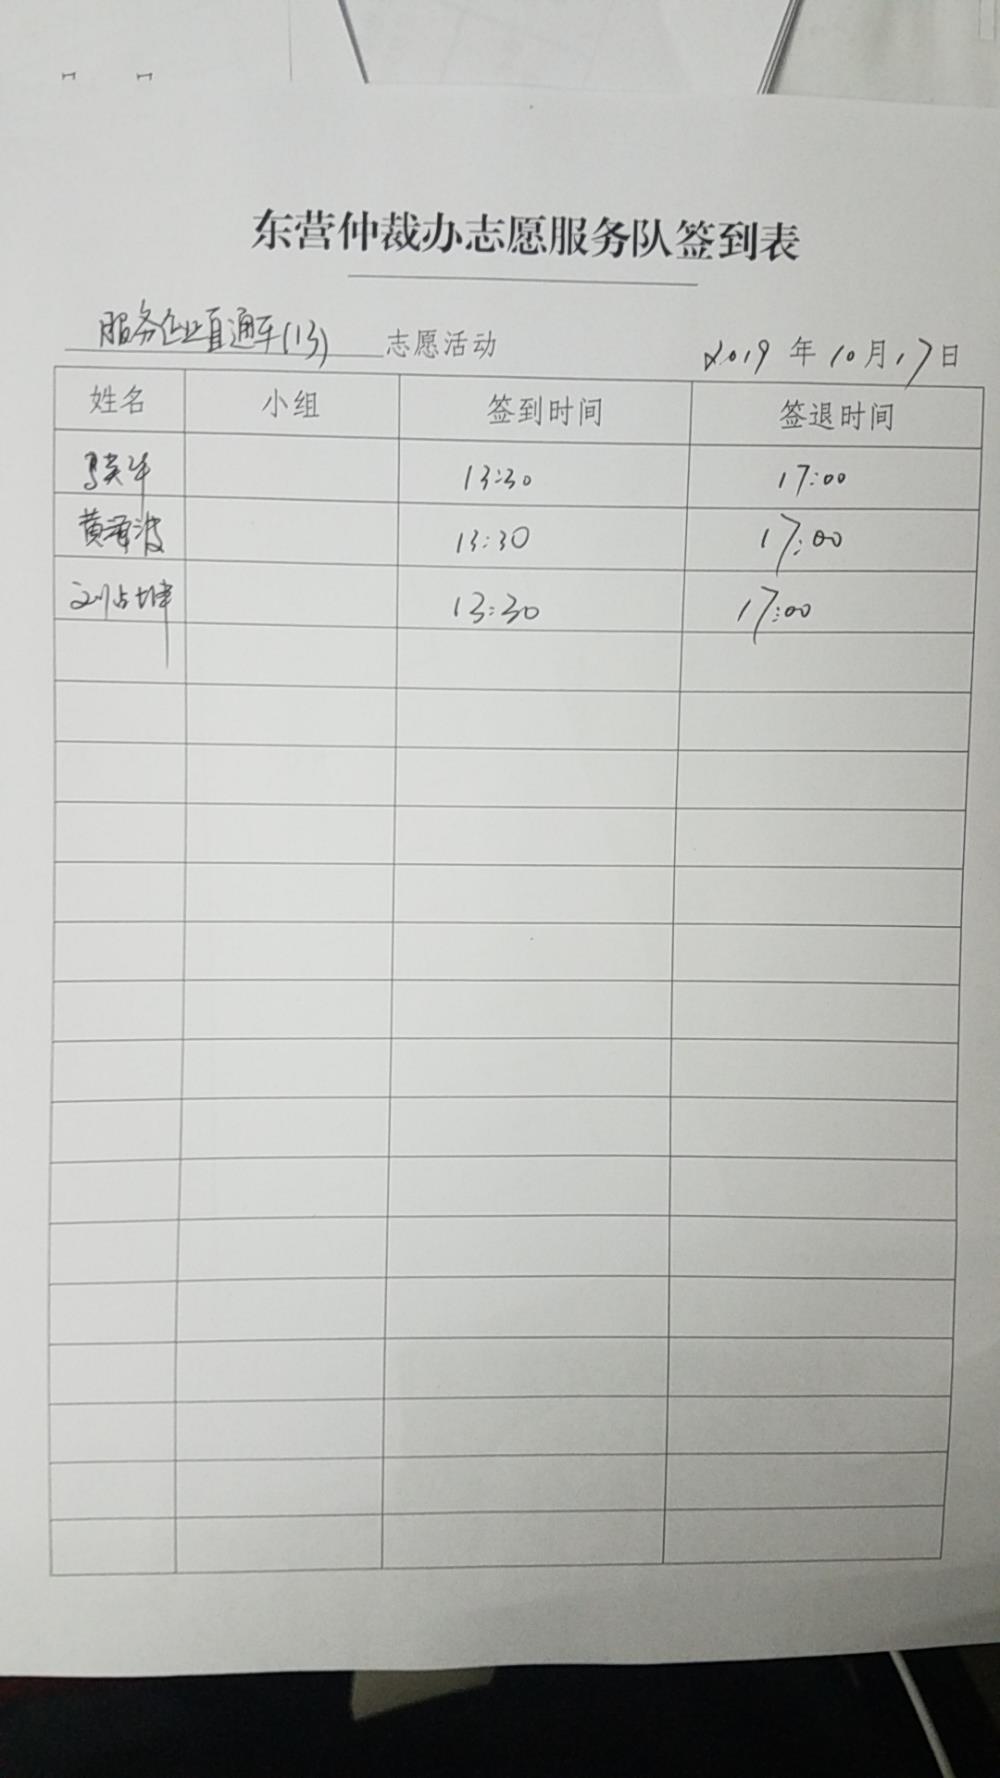 东营仲裁办志愿服务队签到表
服务企业直通车(13) 志愿活动 2019 年 10 月 17 日
姓名 小组 签到时间 签退时间
13:30 17:00
黄海波 13:30 17:00
刘占坤 13:30 17:00